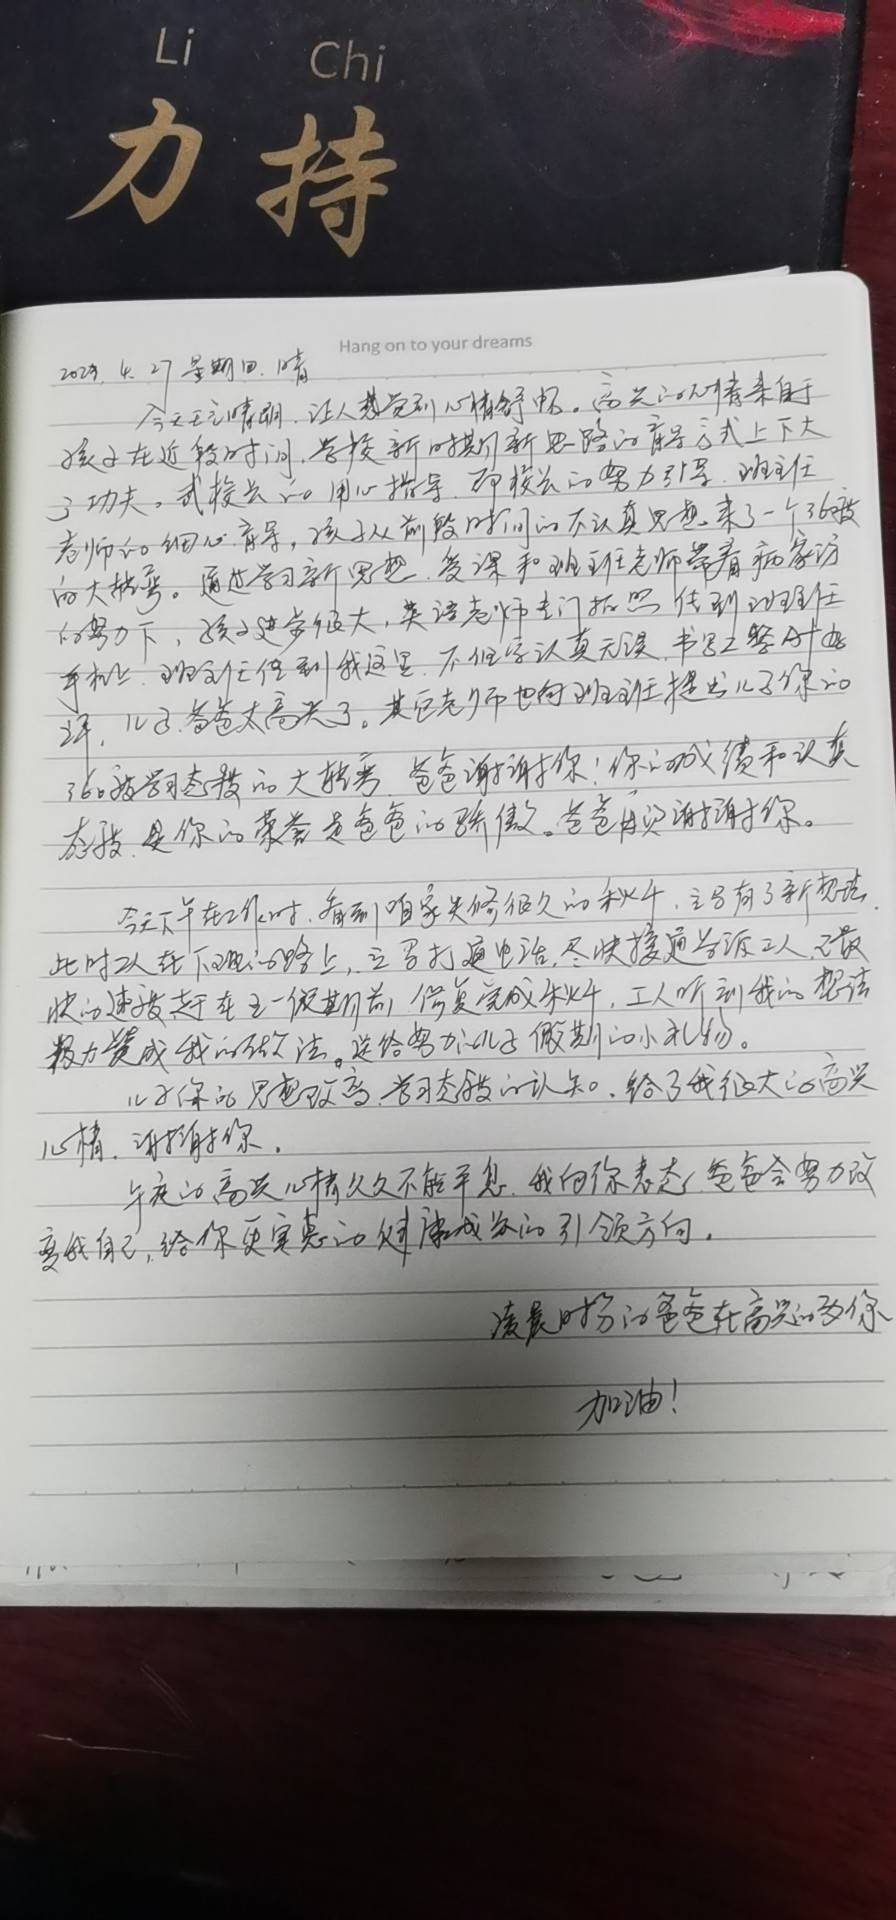 Li Chi
力持
Hang on to your dreams
4.27 星期四.晴
今天天气晴朗.让人感觉到心情舒畅。高兴的心情来自于
孩子在近段时间,学校新时期新思路的育导方式上下大
了功夫。武校长的用心指导.邵校长的努力引导.班主任
老师的细心育导,孩子从前段时间的不认真思想来了一个360度
的大转弯。通过学习新思想.受课和班主任老师带着病家访
的努力下,孩子进步很大,英语老师专门拍照传到班主任
手机上.班主任传到我这里.不但字认真无误.书写工整
儿子.爸爸太高兴了。其它老师也向班主任提出儿子你的
360度学习态度的大转弯.爸爸谢谢你!你的成绩和认真
态度.是你的荣誉是爸爸的骄傲。爸爸再次谢谢你。
今天下午在工作时.看到咱家失修很久的秋千.立马有了新想法.
此时工人在下班的路上,立马打通电话.尽快接通学校工人.已最
快的速度赶在五一假期前修复完成秋千.工人听到我的想法
极力赞成我的做法。送给努力的儿子假期的小礼物。
儿子你的思想改变.学习态度的认知.给了我很大的高兴
心情.谢谢你.
午夜的高兴心情久久不能平息.我向你表态.爸爸会努力改
变我自己,给你更实惠的健康成长的引领方向.
凌晨时分的爸爸在高兴的致你
加油!